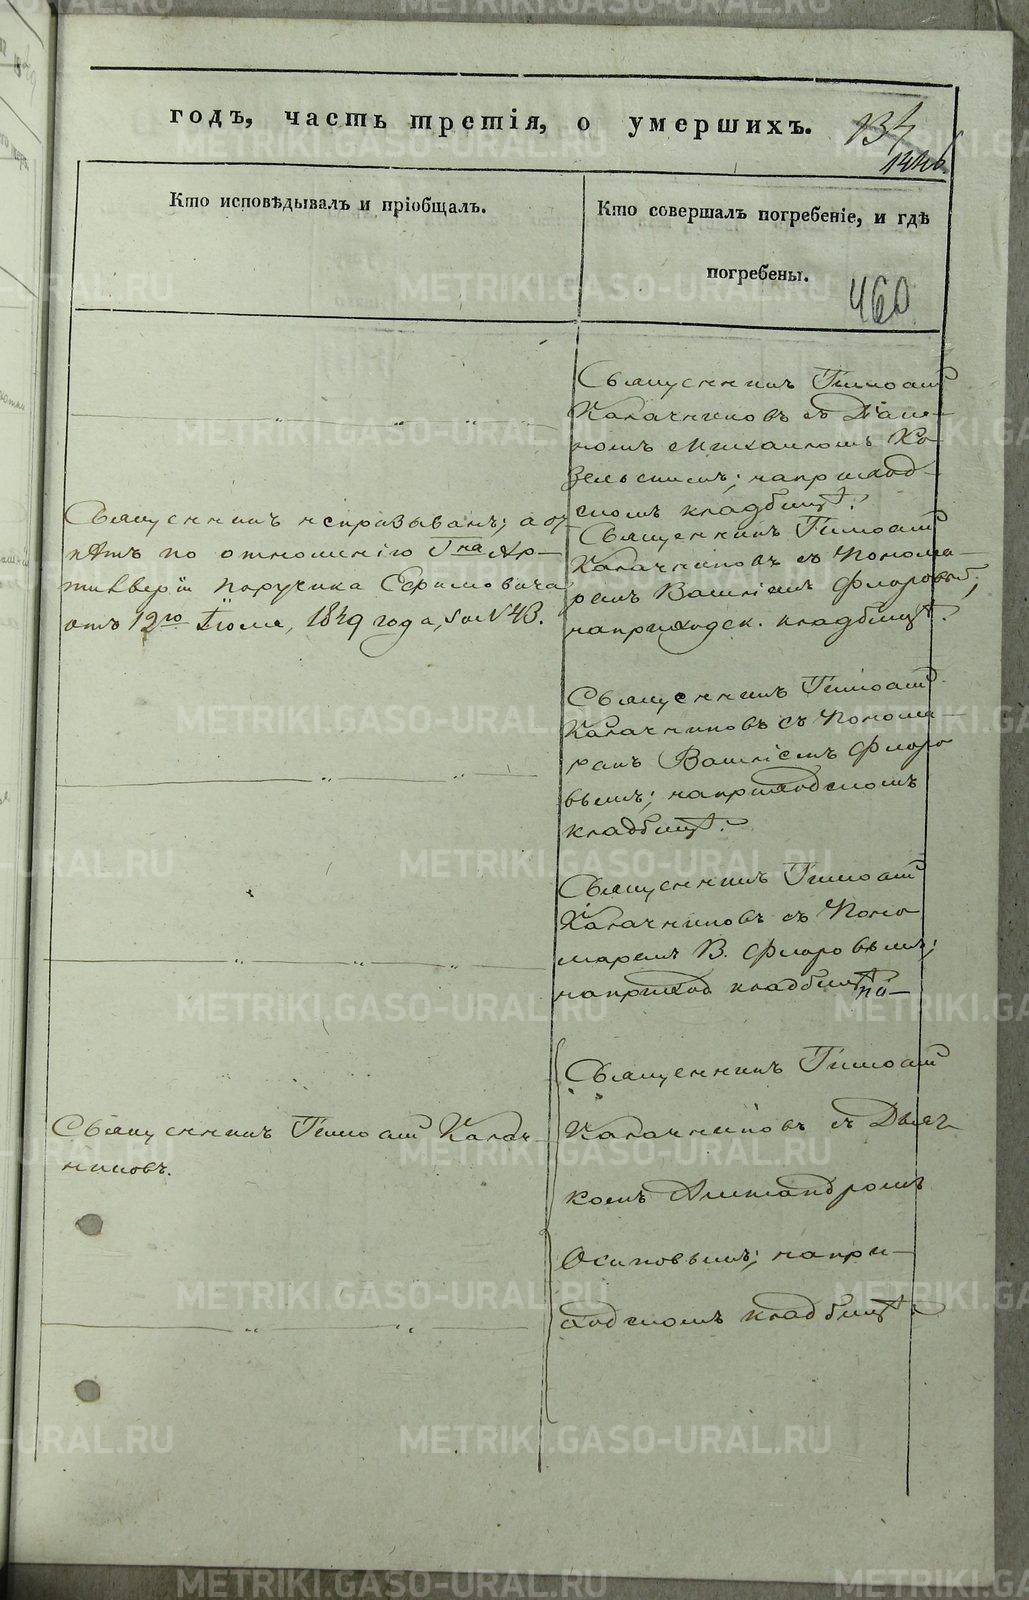 годъ, часть третія, о умершихъ.
134
Кто исповѣдывалъ и пріобщалъ.
Кто совершалъ погребеніе, и гдѣ
погребены.
460
Священникъ Тимоѳей
Калачниковъ съ Діако-
номъ Михаиломъ Ко-
зельскимъ; на приход-
скомъ кладбищѣ.
Священникъ не призыванъ; а от-
пѣтъ по отношенію Г-на Ар-
тиллеріи Поручика Ефимовича
отъ 12го Іюля, 1849 года, за № 43.
Священникъ Тимоѳей
Калачниковъ съ Понома-
ремъ Василіемъ Флоровымъ;
на приходск. кладбищѣ.
Священникъ Тимоѳей
Калачниковъ съ Понома-
remъ Василіемъ Флоро-
вымъ; на приходскомъ
кладбищѣ.
Священникъ Тимоѳей
Калачниковъ съ Поно-
маремъ В. Флоровымъ;
на приход. кладбищѣ
Священникъ Тимоѳей Калач-
никовъ.
Священникъ Тимоѳей
Калачниковъ съ Дьяч-
комъ Александромъ
Осиповымъ; на при-
ходскомъ кладбищѣ.
METRIKI.GASO-URAL.RU